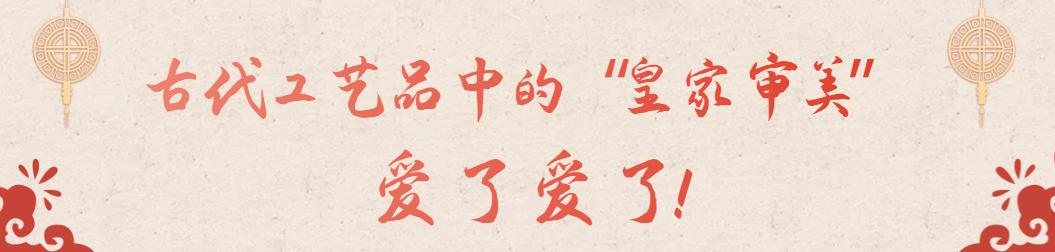 古代工艺品中的“皇家审美”
爱了爱了!